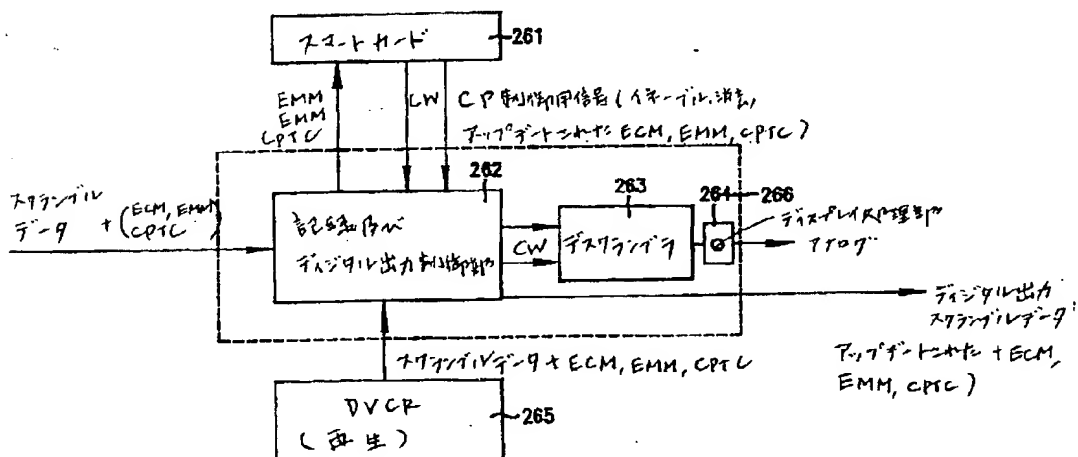 スマートカード
261
EMM
EMM
CPTC
CW
CP制御用信号(イネーブル,消去,
アップデートされた ECM, EMM, CPTC)
スクランブル
データ + (ECM, EMM
CPTC)
262
記録及び
ディジタル出力制御部
CW
263
デスクランブラ
264
266
ディスプレイ処理部
アナログ
ディジタル出力
スクランブルデータ
アップデートされた + ECM,
EMM, CPTC)
スクランブルデータ + ECM, EMM, CPTC
DVCR
(再生)
265